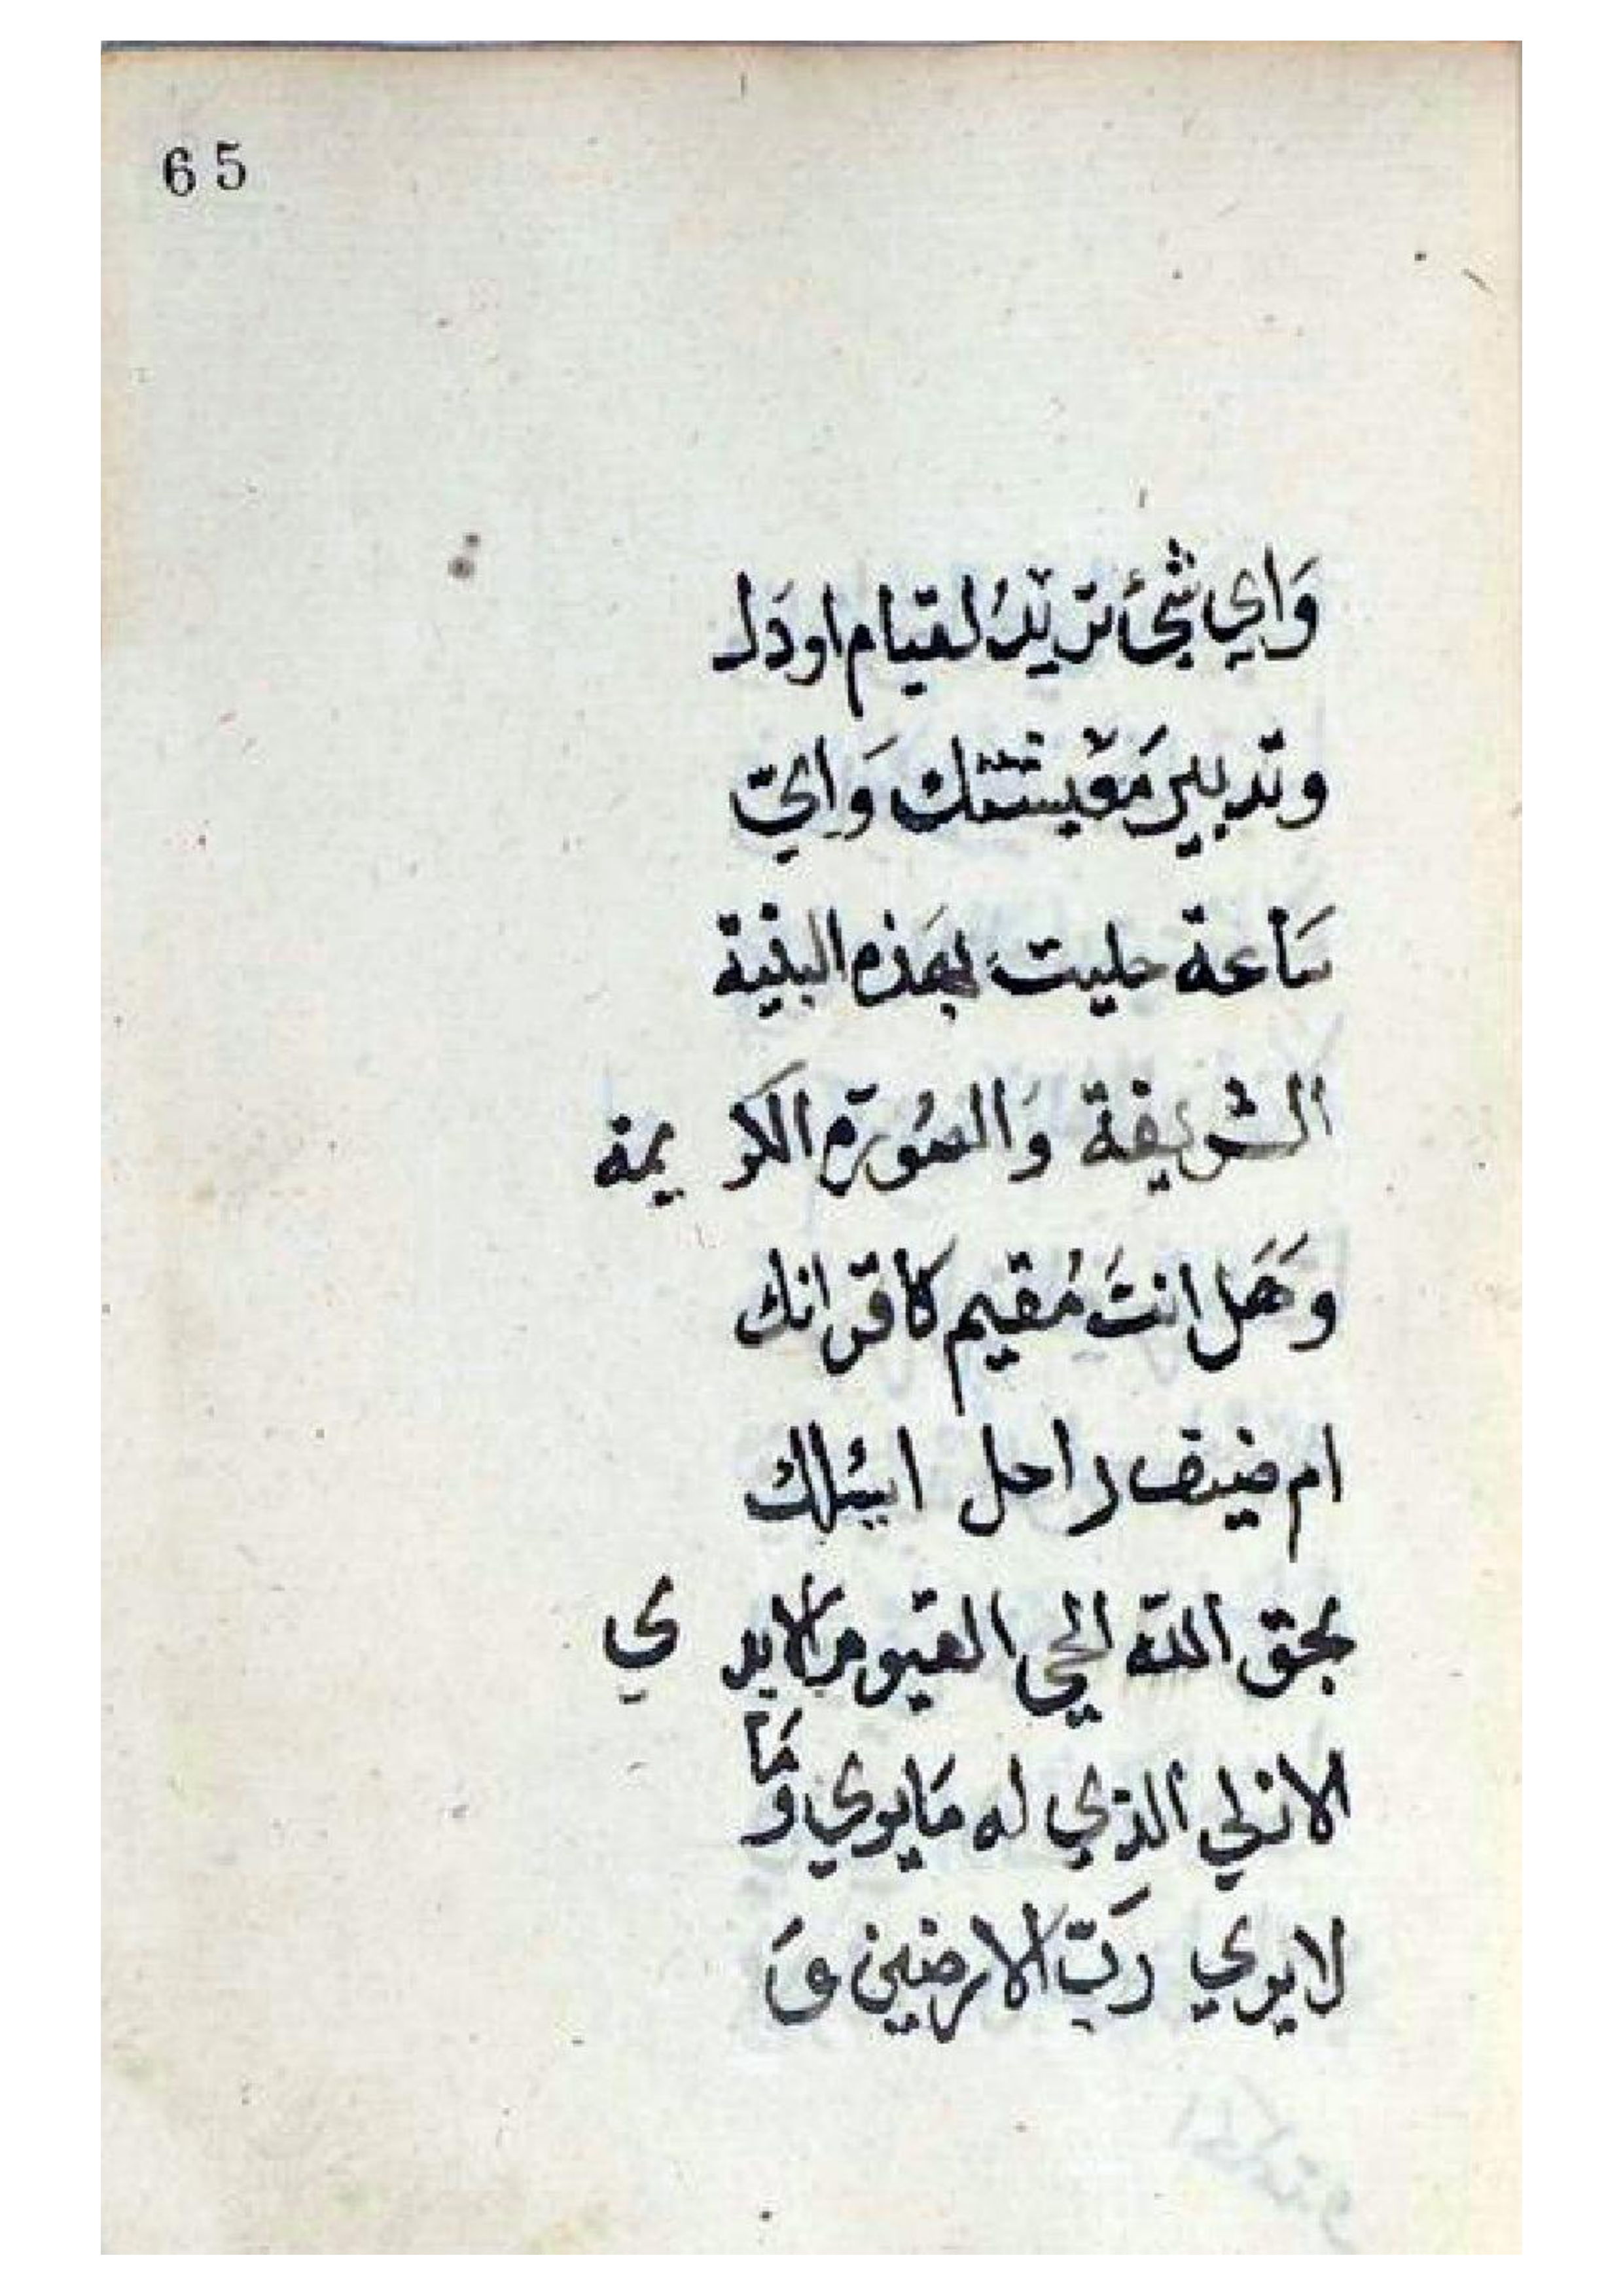 65
وَاي شئ تريدُ لقيام اودَك
وتدبير مَعيشتك وَايّ
سَاعة حليت بهَذه البنية
الشريفة وَالصُورة الكريمة
وهَل انتَ مُقيم كاقرانك
ام ضيف راحل اسئلك
بحق اللّه الحي القيوم الابدي
الازلي الذي له مَا يري وَمَا
لا يري رَبّ الارضين وَ